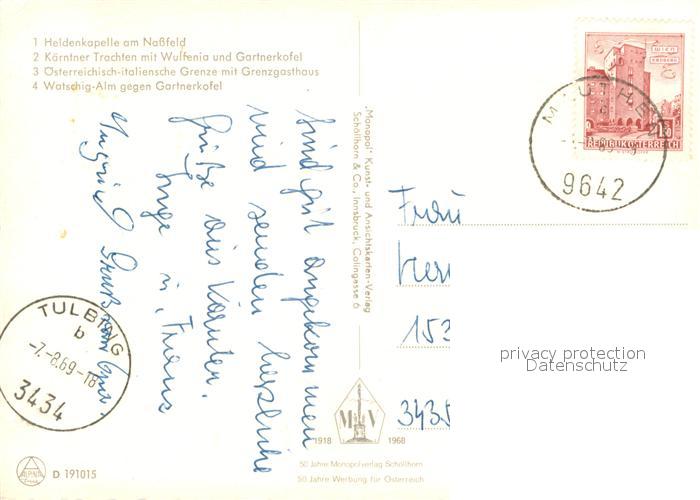 1 Heldenkapelle am Naßfeld
2 Kärntner Trachten mit Wulfenia und Gartnerkofel
3 Österreichisch-italiensche Grenze mit Grenzgasthaus
4 Watschig-Alm gegen Gartnerkofel
Sind gut angekommen
und senden herzliche
Grüße aus Kärnten.
Inge u. Franz
"Monopol" Kunst- und Ansichtskarten-Verlag
Schöllhorn & Co., Innsbruck, Colingasse 6
WIEN
ERDBERG
1.50
REPUBLIK ÖSTERREICH
MAUTHEN
9642
Frau
153
3435
TULBING
b
-7.-8.69-18
3434
M V
1918 1968
50 Jahre Monopolverlag Schöllhorn
50 Jahre Werbung für Österreich
ALPINA
D 191015
privacy protection
Datenschutz